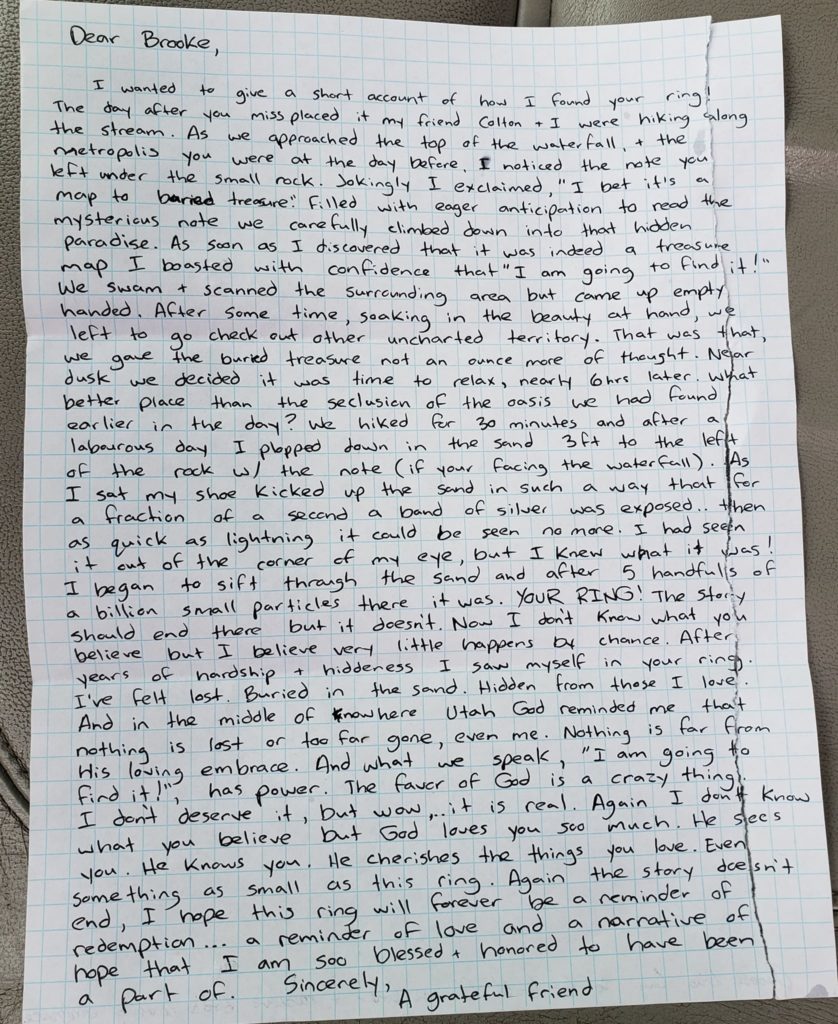 Dear Brooke,
I wanted to give a short account of how I found your ring!
The day after you miss placed it my friend Colton + I were hiking along
the stream. As we approached the top of the waterfall, + the
metropolis you were at the day before, I noticed the note you
left under the small rock. Jokingly I exclaimed, "I bet it's a
map to buried treasure". Filled with eager anticipation to read the
mysterious note we carefully climbed down into that hidden
paradise. As soon as I discovered that it was indeed a treasure
map I boasted with confidence that "I am going to find it!"
We swam + scanned the surrounding area but came up empty
handed. After some time, soaking in the beauty at hand, we
left to go check out other uncharted territory. That was that,
we gave the buried treasure not an ounce more of thought. Near
dusk we decided it was time to relax, nearly 6hrs later. What
better place than the seclusion of the oasis we had found
earlier in the day? We hiked for 30 minutes and after a
labourous day I plopped down in the sand 3ft to the left
of the rock w/ the note (if your facing the waterfall). As
I sat my shoe kicked up the sand in such a way that for
a fraction of a second a band of silver was exposed.. then
as quick as lightning it could be seen no more. I had seen
it out of the corner of my eye, but I knew what it was!
I began to sift through the sand and after 5 handfulls of
a billion small particles there it was. YOUR RING! The story
should end there but it doesn't. Now I don't know what you
believe but I believe very little happens by chance. After
years of hardship + hiddeness I saw myself in your ring.
I've felt lost. Buried in the sand. Hidden from those I love.
And in the middle of nowhere Utah God reminded me that
nothing is lost or too far gone, even me. Nothing is far from
His loving embrace. And what we speak, "I am going to
find it!", has power. The favor of God is a crazy thing.
I don't deserve it, but wow,...it is real. Again I don't know
what you believe but God loves you soo much. He sees
you. He knows you. He cherishes the things you love. Even
something as small as this ring. Again the story doesn't
end, I hope this ring will forever be a reminder of
redemption... a reminder of love and a narrative of
hope that I am soo blessed + honored to have been
a part of. Sincerely,
A grateful friend